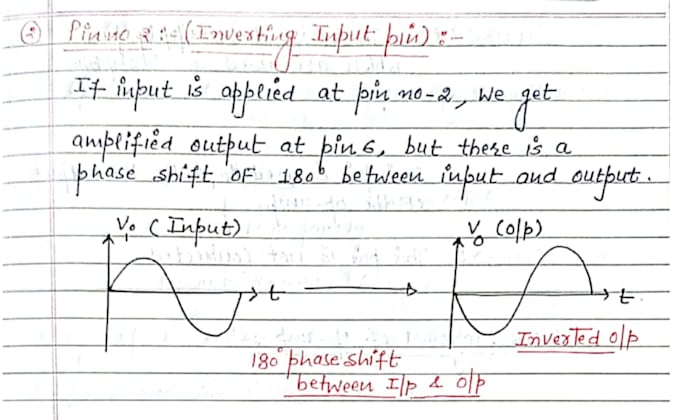 ② Pin no 2 :- (Inverting Input pin) :-
If input is applied at pin no-2, we get
amplified output at pin 6, but there is a
phase shift OF 180° between input and output.
Vi (Input)
t
Vo (o/p)
t.
Inverted o/p
180° phase shift
between I/p & o/p